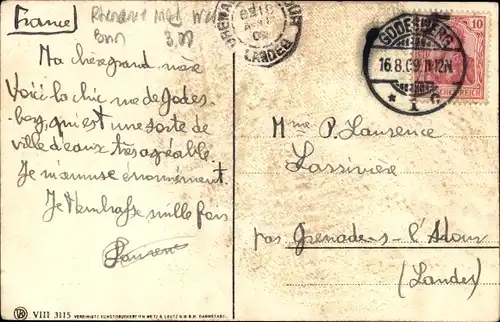 France
Rhénanie
Bonn
GODESBERG
16.8.09. 11-12N
* 1 c.
10
REICH
GRENADE
LANDES
Ma chère grand'mère
Voici la chic rue de Godes-
berg, qui est une sorte de
ville d'eaux très agréable.
Je m'amuse énormément.
Je t'embrasse mille fois
Laurence
Mme P. Laurence
Lassivière
par Grenade-s-l'Adour
(Landes)
VIII 3115 VEREINIGTE KUNSTDRUCKEREIEN METZ & LAUTZ G.M.B.H. DARMSTADT.